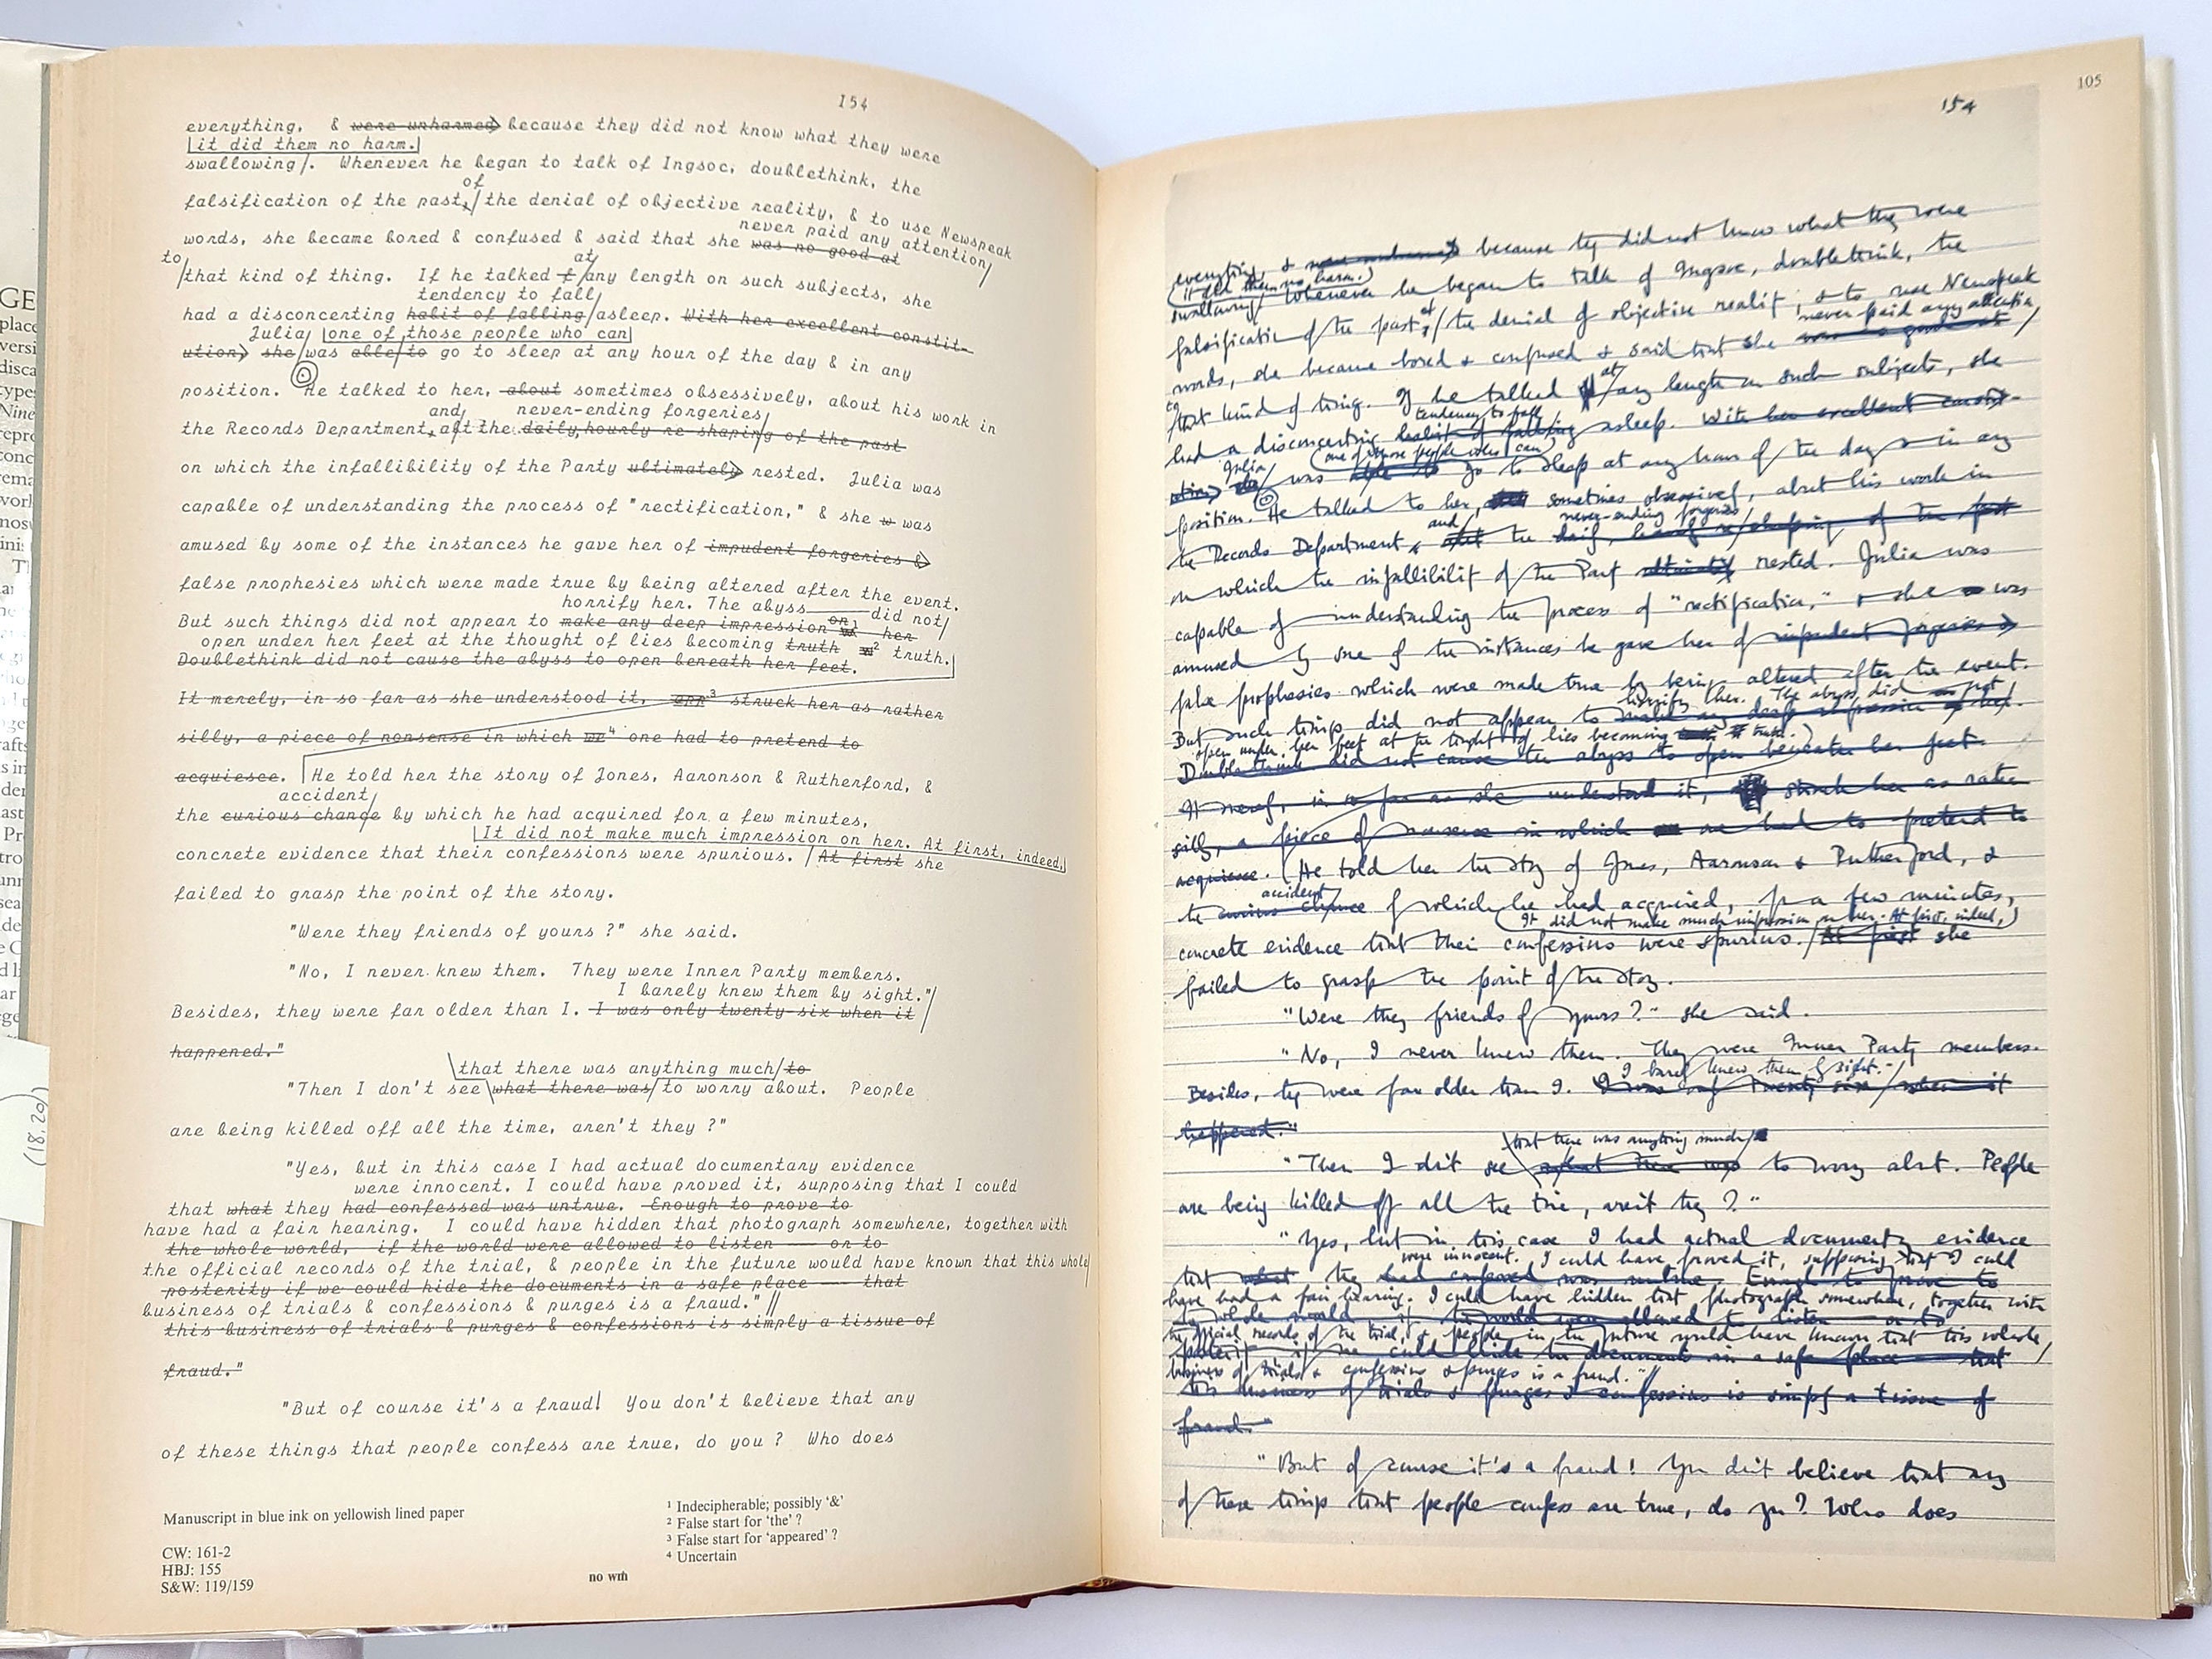 154
everything, & were unharmed because they did not know what they were
it did them no harm.
swallowing/. Whenever he began to talk of Ingsoc, doublethink, the
of
falsification of the past,/ the denial of objective reality, & to use Newspeak
never paid any attention/
words, she became bored & confused & said that she was no good at
to/ at/
that kind of thing. If he talked f any length on such subjects, she
tendency to fall/
had a disconcerting habit of falling asleep. With her excellent constit-
Julia/ one of those people who can
ution, she was able to go to sleep at any hour of the day & in any
position. He talked to her, about sometimes obsessively, about his work in
and/ never-ending forgeries/
the Records Department, aft the daily, hourly re-shaping of the past
on which the infallibility of the Party ultimately rested. Julia was
capable of understanding the process of "rectification," & she w was
amused by some of the instances he gave her of impudent forgeries &
false prophesies which were made true by being altered after the event.
horrify her. The abyss did not/
But such things did not appear to make any deep impression on¹ her
open under her feet at the thought of lies becoming truth ² truth.
Doublethink did not cause the abyss to open beneath her feet.
It merely, in so far as she understood it, app³ struck her as rather
silly, a piece of nonsense in which we⁴ one had to pretend to
acquiesce. He told her the story of Jones, Aaronson & Rutherford, &
accident/
the curious chance by which he had acquired for a few minutes,
It did not make much impression on her. At first, indeed,
concrete evidence that their confessions were spurious. At first she
failed to grasp the point of the story.
"Were they friends of yours ?" she said.
"No, I never knew them. They were Inner Party members.
I barely knew them by sight."/
Besides, they were far older than I. I was only twenty-six when it
happened."
that there was anything much/ to
"Then I don't see what there was to worry about. People
are being killed off all the time, aren't they ?"
"Yes, but in this case I had actual documentary evidence
were innocent. I could have proved it, supposing that I could
that what they had confessed was untrue. Enough to prove to
have had a fair hearing. I could have hidden that photograph somewhere, together with
the whole world, if the world were allowed to listen — or to
the official records of the trial, & people in the future would have known that this whole/
posterity if we could hide the documents in a safe place — that
business of trials & confessions & purges is a fraud." //
this business of trials & purges & confessions is simply a tissue of
fraud."
"But of course it's a fraud! You don't believe that any
of these things that people confess are true, do you ? Who does
Manuscript in blue ink on yellowish lined paper
CW: 161-2
HBJ: 155
S&W: 119/159
no wm
¹ Indecipherable; possibly '&'
² False start for 'the' ?
³ False start for 'appeared' ?
⁴ Uncertain
(18,20)
105
154
everything, & were unharmed because they did not know what they were
it did them no harm.
swallowing/ Whenever he began to talk of Ingsoc, doublethink, the
of
falsification of the past,/ the denial of objective reality, & to use Newspeak
never paid any attention
words, she became bored & confused & said that she was no good at /
to at/
that kind of thing. If he talked any length on such subjects, she
tendency to fall/
had a disconcerting habit of falling asleep. With her excellent constit-
Julia one of those people who can
ution she was able to go to sleep at any hour of the day & in any
position. He talked to her, sometimes obsessively, about his work in
and never-ending forgeries
the Records Department, the daily, hourly re-shaping of the past
on which the infallibility of the Party ultimately rested. Julia was
capable of understanding the process of "rectification," & she was
amused by some of the instances he gave her of impudent forgeries &
false prophesies which were made true by being altered after the event.
horrify her. The abyss did not/
But such things did not appear to make any deep impression her.
open under her feet at the thought of lies becoming truth truth.
Doublethink did not cause the abyss to open beneath her feet.
It merely, in so far as she understood it, struck her as rather
silly, a piece of nonsense in which one had to pretend to
acquiesce. He told her the story of Jones, Aaronson & Rutherford, &
accident/
the curious chance by which he had acquired, for a few minutes,
It did not make much impression on her. At first, indeed,
concrete evidence that their confessions were spurious. At first she
failed to grasp the point of the story.
"Were they friends of yours?" she said.
"No, I never knew them. They were Inner Party members.
I barely knew them by sight."
Besides, they were far older than I. I was only twenty six/ when it
happened."
that there was anything much/
"Then I don't see what there was to worry about. People
are being killed off all the time, aren't they?"
"Yes, but in this case I had actual documentary evidence
were innocent. I could have proved it, supposing that I could
that what they had confessed was untrue. Enough to prove to
have had a fair hearing. I could have hidden that photograph somewhere, together with
the whole world if the world were allowed to listen — or to
the official records of the trial, & people in the future would have known that this whole/
posterity if we could hide the documents in a safe place — that
business of trials & confessions & purges is a fraud." //
this business of trials & purges & confessions is simply a tissue of
fraud."
"But of course it's a fraud! You don't believe that any
of these things that people confess are true, do you? Who does